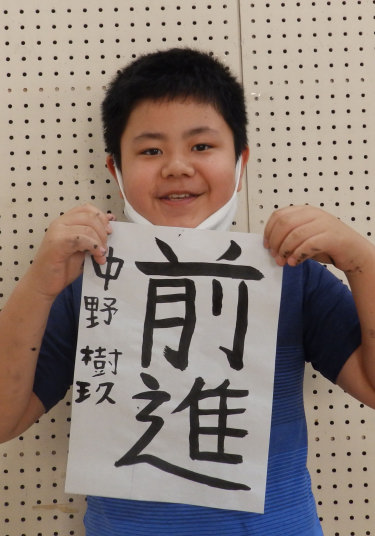 前進
中野樹玖